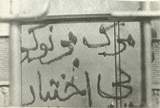 مرگ بر نوکر
بی اختیار